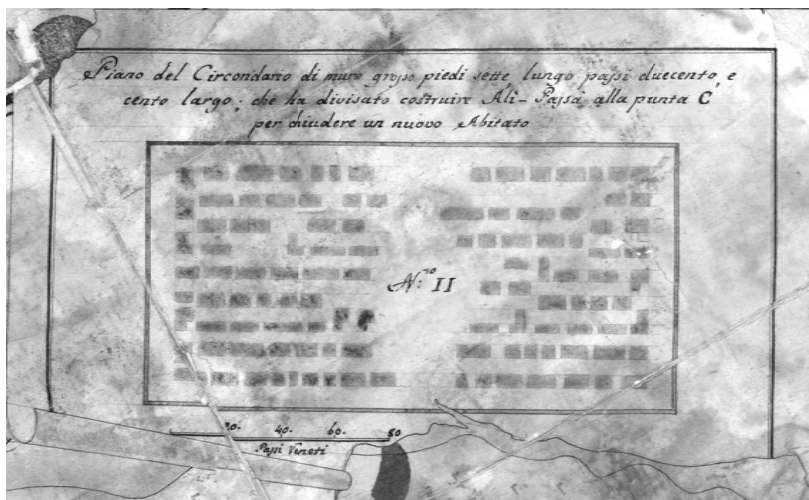 Piano del Circondario di muro grosso piedi sette, lungo passi duecento, e
cento largo; che ha divisato costruire Ali-Passà alla punta C
per chiudere un nuovo Abitato
N:ro II
20. 40. 60. 80
Passi Veneti